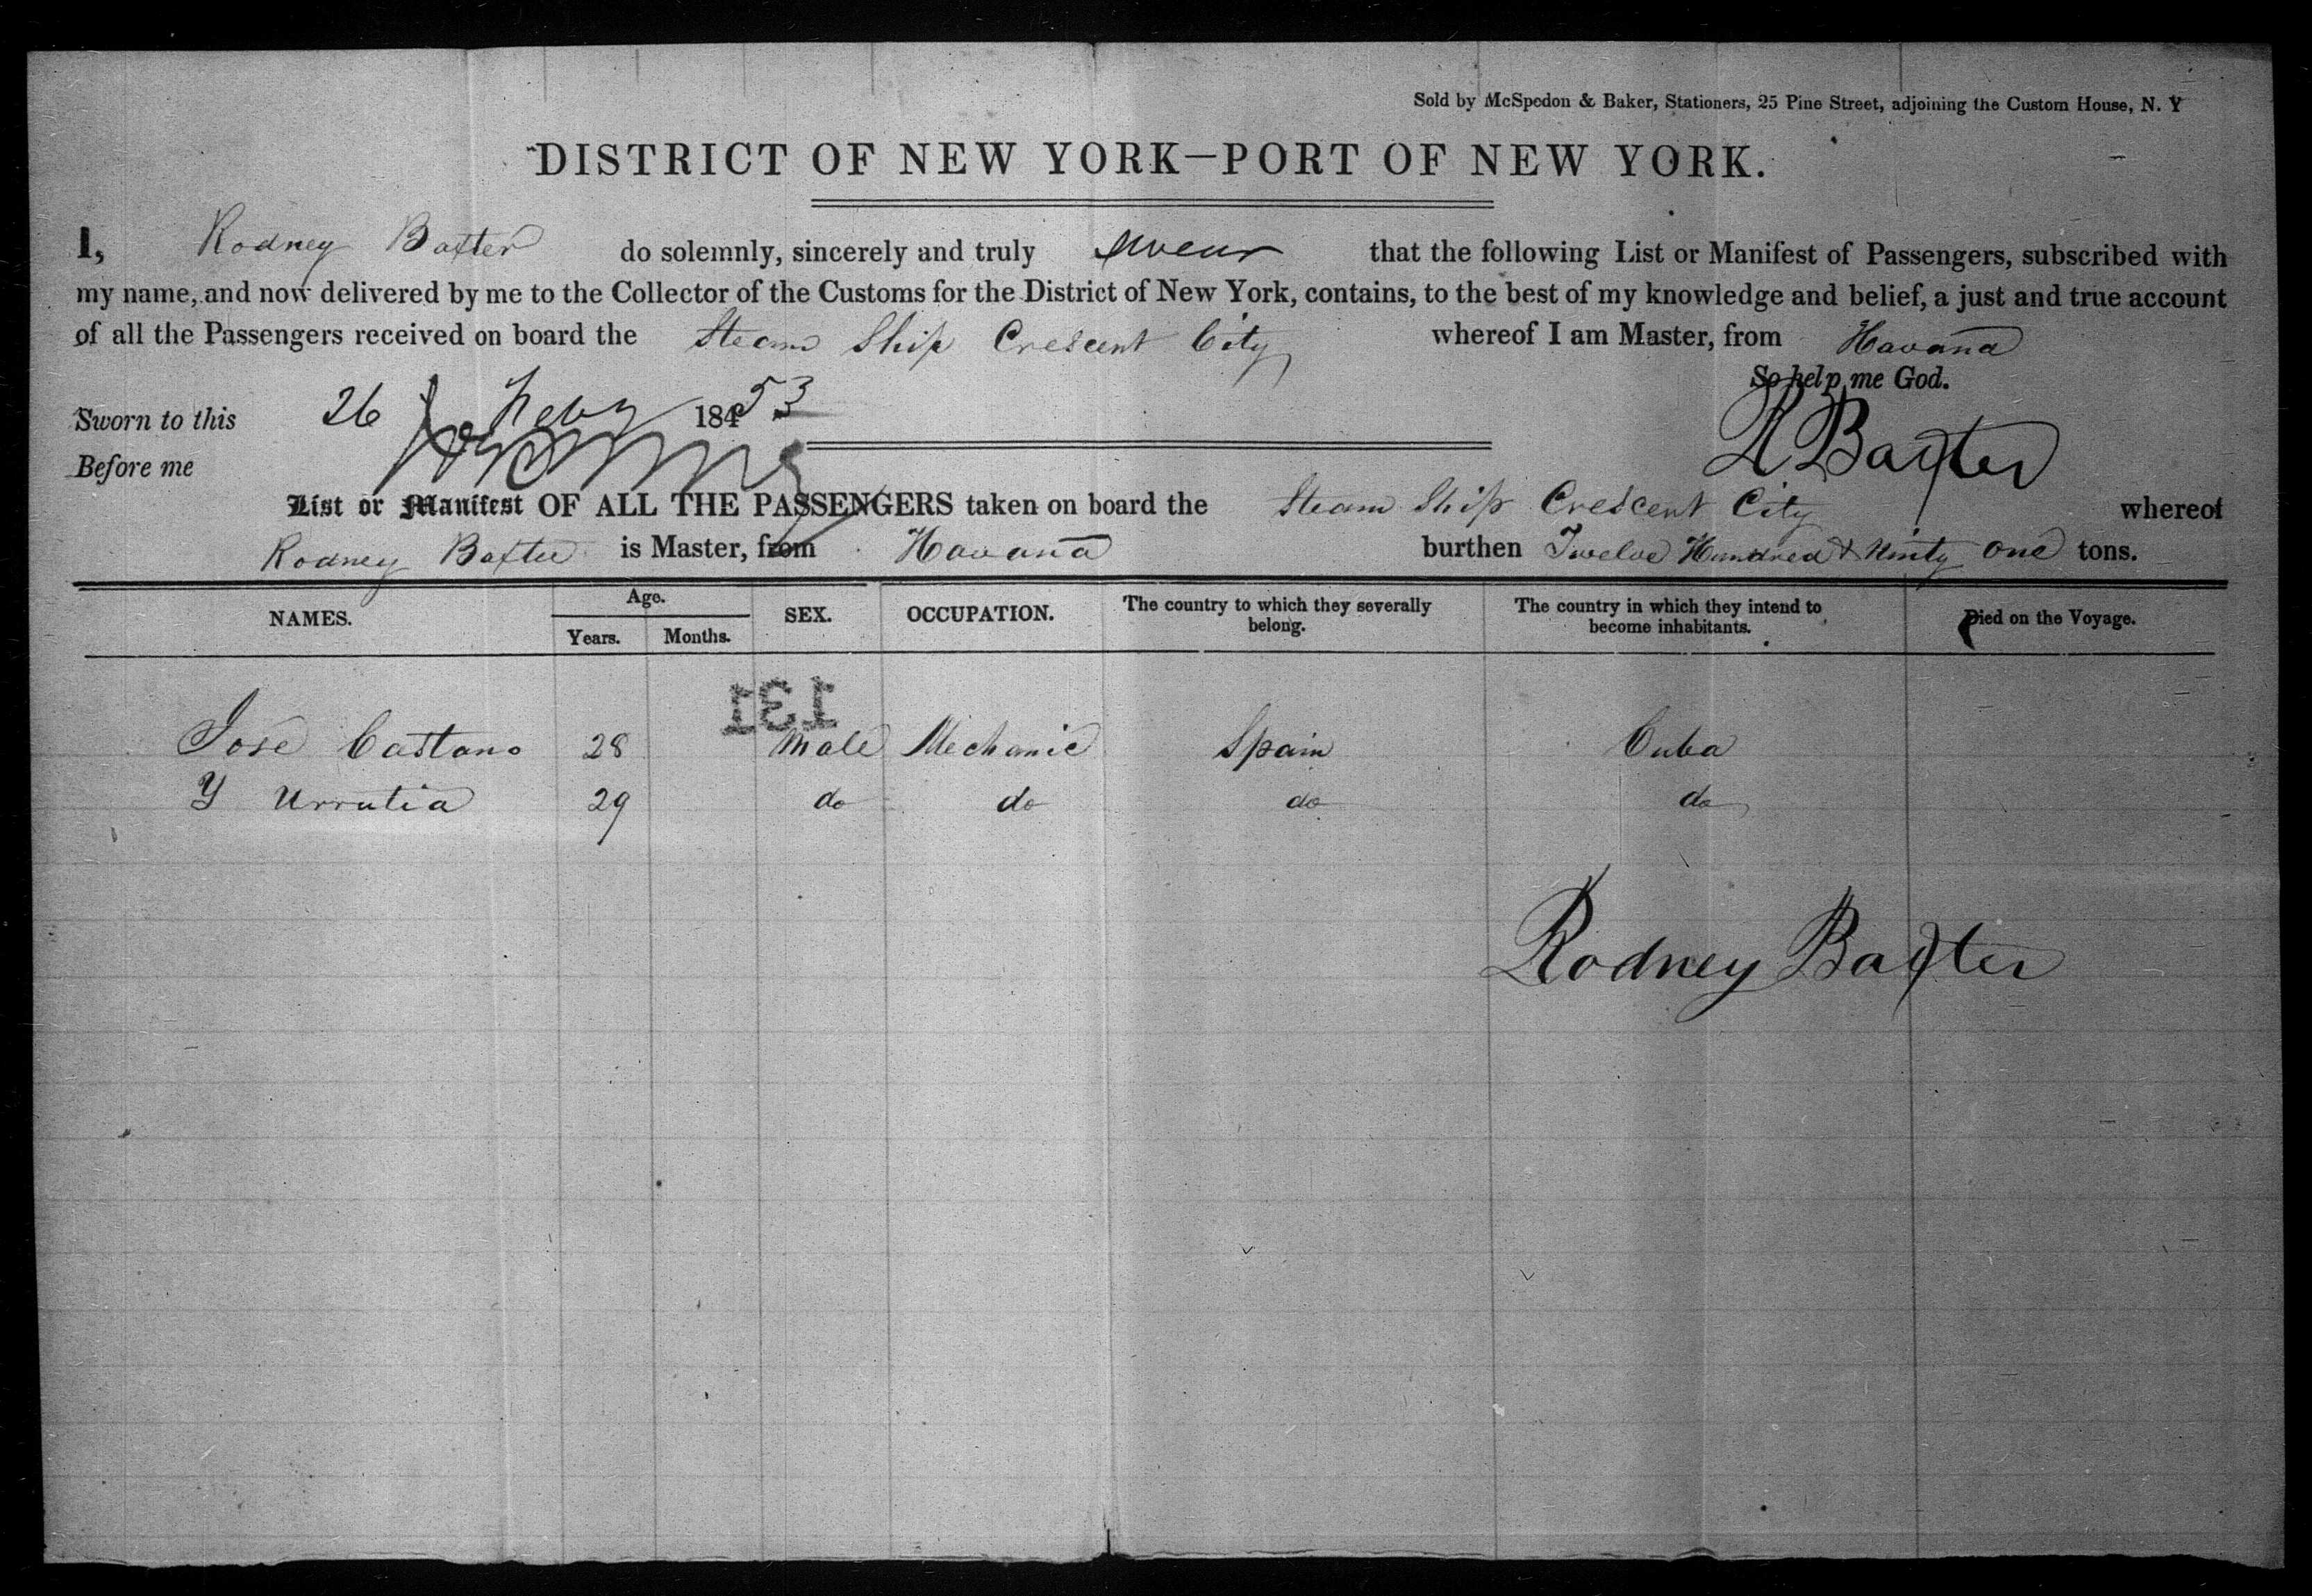 Sold by McSpedon & Baker, Stationers, 25 Pine Street, adjoining the Custom House, N. Y
DISTRICT OF NEW YORK—PORT OF NEW YORK.
I, Rodney Baxter do solemnly, sincerely and truly swear that the following List or Manifest of Passengers, subscribed with
my name, and now delivered by me to the Collector of the Customs for the District of New York, contains, to the best of my knowledge and belief, a just and true account
of all the Passengers received on board the Steam Ship Crescent City whereof I am Master, from Havana
So help me God.
Sworn to this 26 Feby 18453
R Baxter
Before me
List or Manifest OF ALL THE PASSENGERS taken on board the Steam Ship Crescent City whereof
Rodney Baxter is Master, from Havana burthen Twelve Hundred & Ninty One tons.
NAMES. Age. Years. Months. SEX. OCCUPATION. The country to which they severally belong. The country in which they intend to become inhabitants. Died on the Voyage.
131
Jose Castano 28 Male Mechanic Spain Cuba
Y Urrutia 29 do do do do
Rodney Baxter